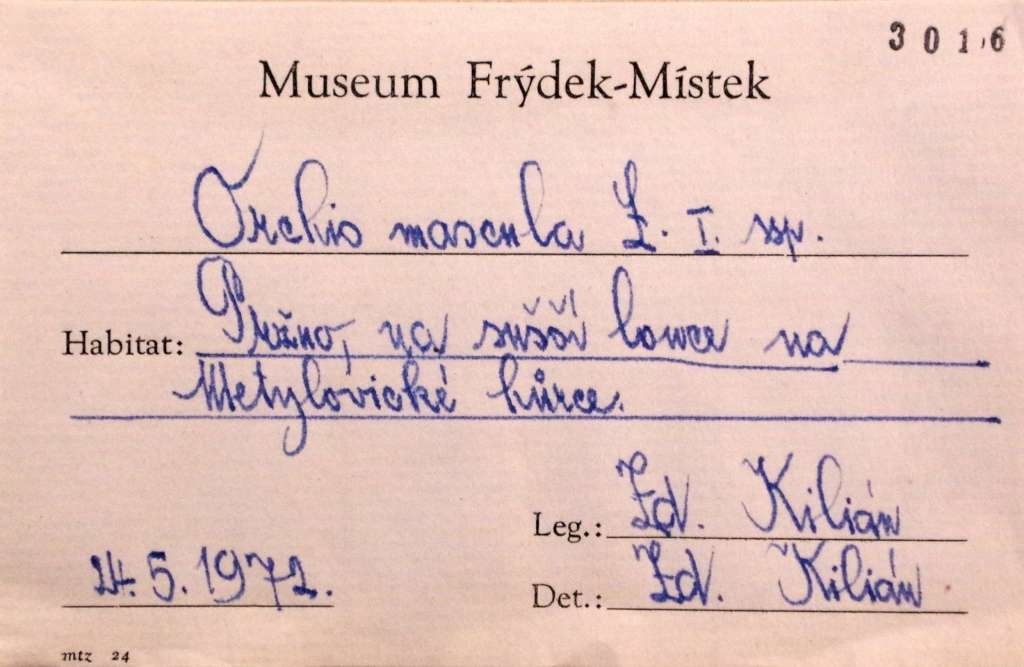 3016
Museum Frýdek-Místek
Orchis mascula L. I. ssp.
Habitat: Pržno, na sušší louce na
Metylovické hůrce.
Leg.: Zd. Kilián
24.5.1972.
Det.: Zd. Kilián
mtz 24